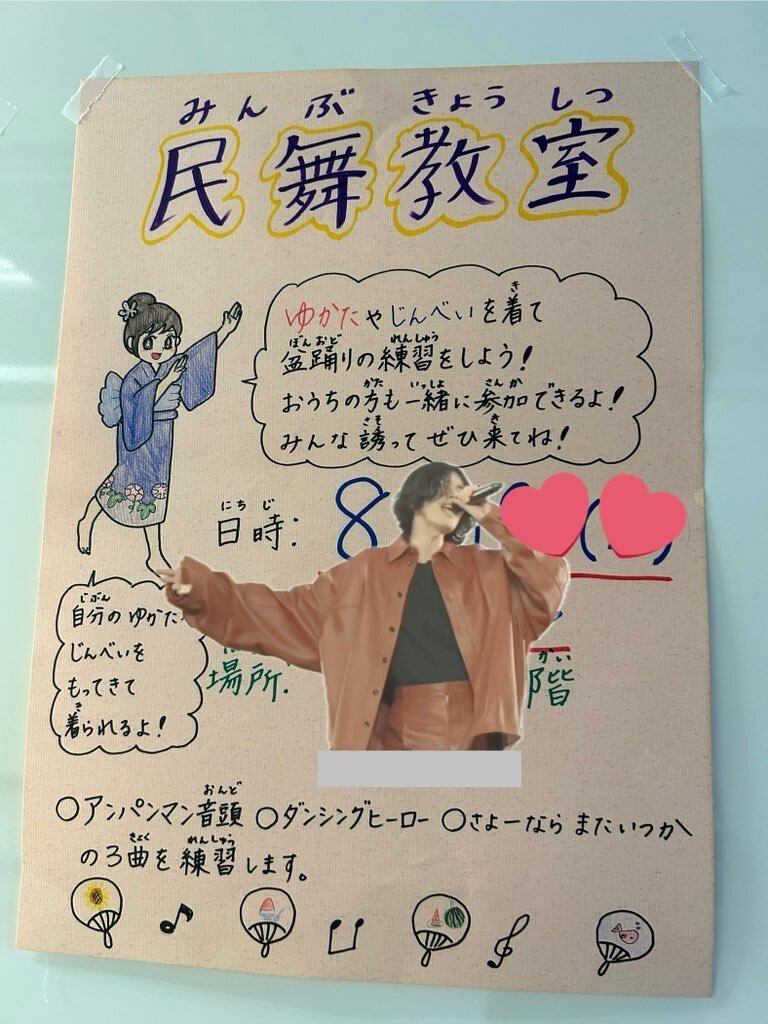 みんぶきょうしつ
民舞教室
ゆかたやじんべいを着て
盆踊りの練習をしよう!
おうちの方も一緒に参加できるよ!
みんな誘ってぜひ来てね!
日時: 8
自分のゆかた
じんべいを
もってきて
着られるよ!
場所: 階
○アンパンマン音頭 ○ダンシングヒーロー ○さよーなら またいつか
の3曲を練習します。